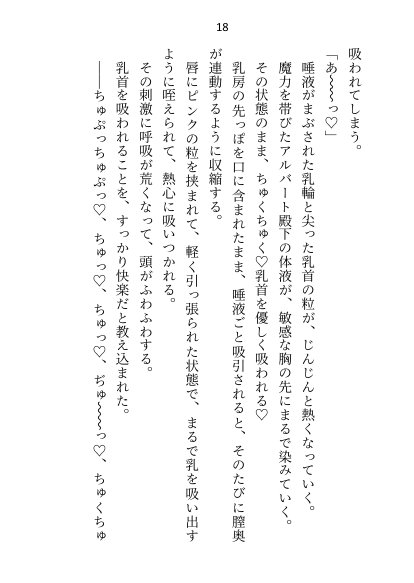 18
吸われてしまう。
「あ〜〜っ♡」
唾液がまぶされた乳輪と尖った乳首の粒が、じんじんと熱くなっていく。
魔力を帯びたアルバート殿下の体液が、敏感な胸の先にまるで染みていく。
その状態のまま、ちゅくちゅく♡乳首を優しく吸われる♡
乳房の先っぽを口に含まれたまま、唾液ごと吸引されると、そのたびに膣奥
が連動するように収縮する。
唇にピンクの粒を挟まれて、軽く引っ張られた状態で、まるで乳を吸い出す
ように咥えられて、熱心に吸いつかれる。
その刺激に呼吸が荒くなって、頭がふわふわする。
乳首を吸われることを、すっかり快楽だと教え込まれた。
――ちゅぷっちゅぷっ♡、ちゅっ♡、ちゅっ♡、ぢゅ〜〜っ♡、ちゅくちゅ